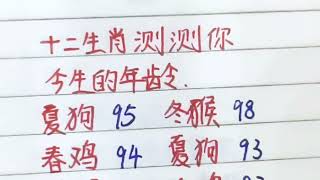 十二生肖测测你
今生的年龄.
夏狗 95 冬猴 98
春鸡 94 夏狗 93